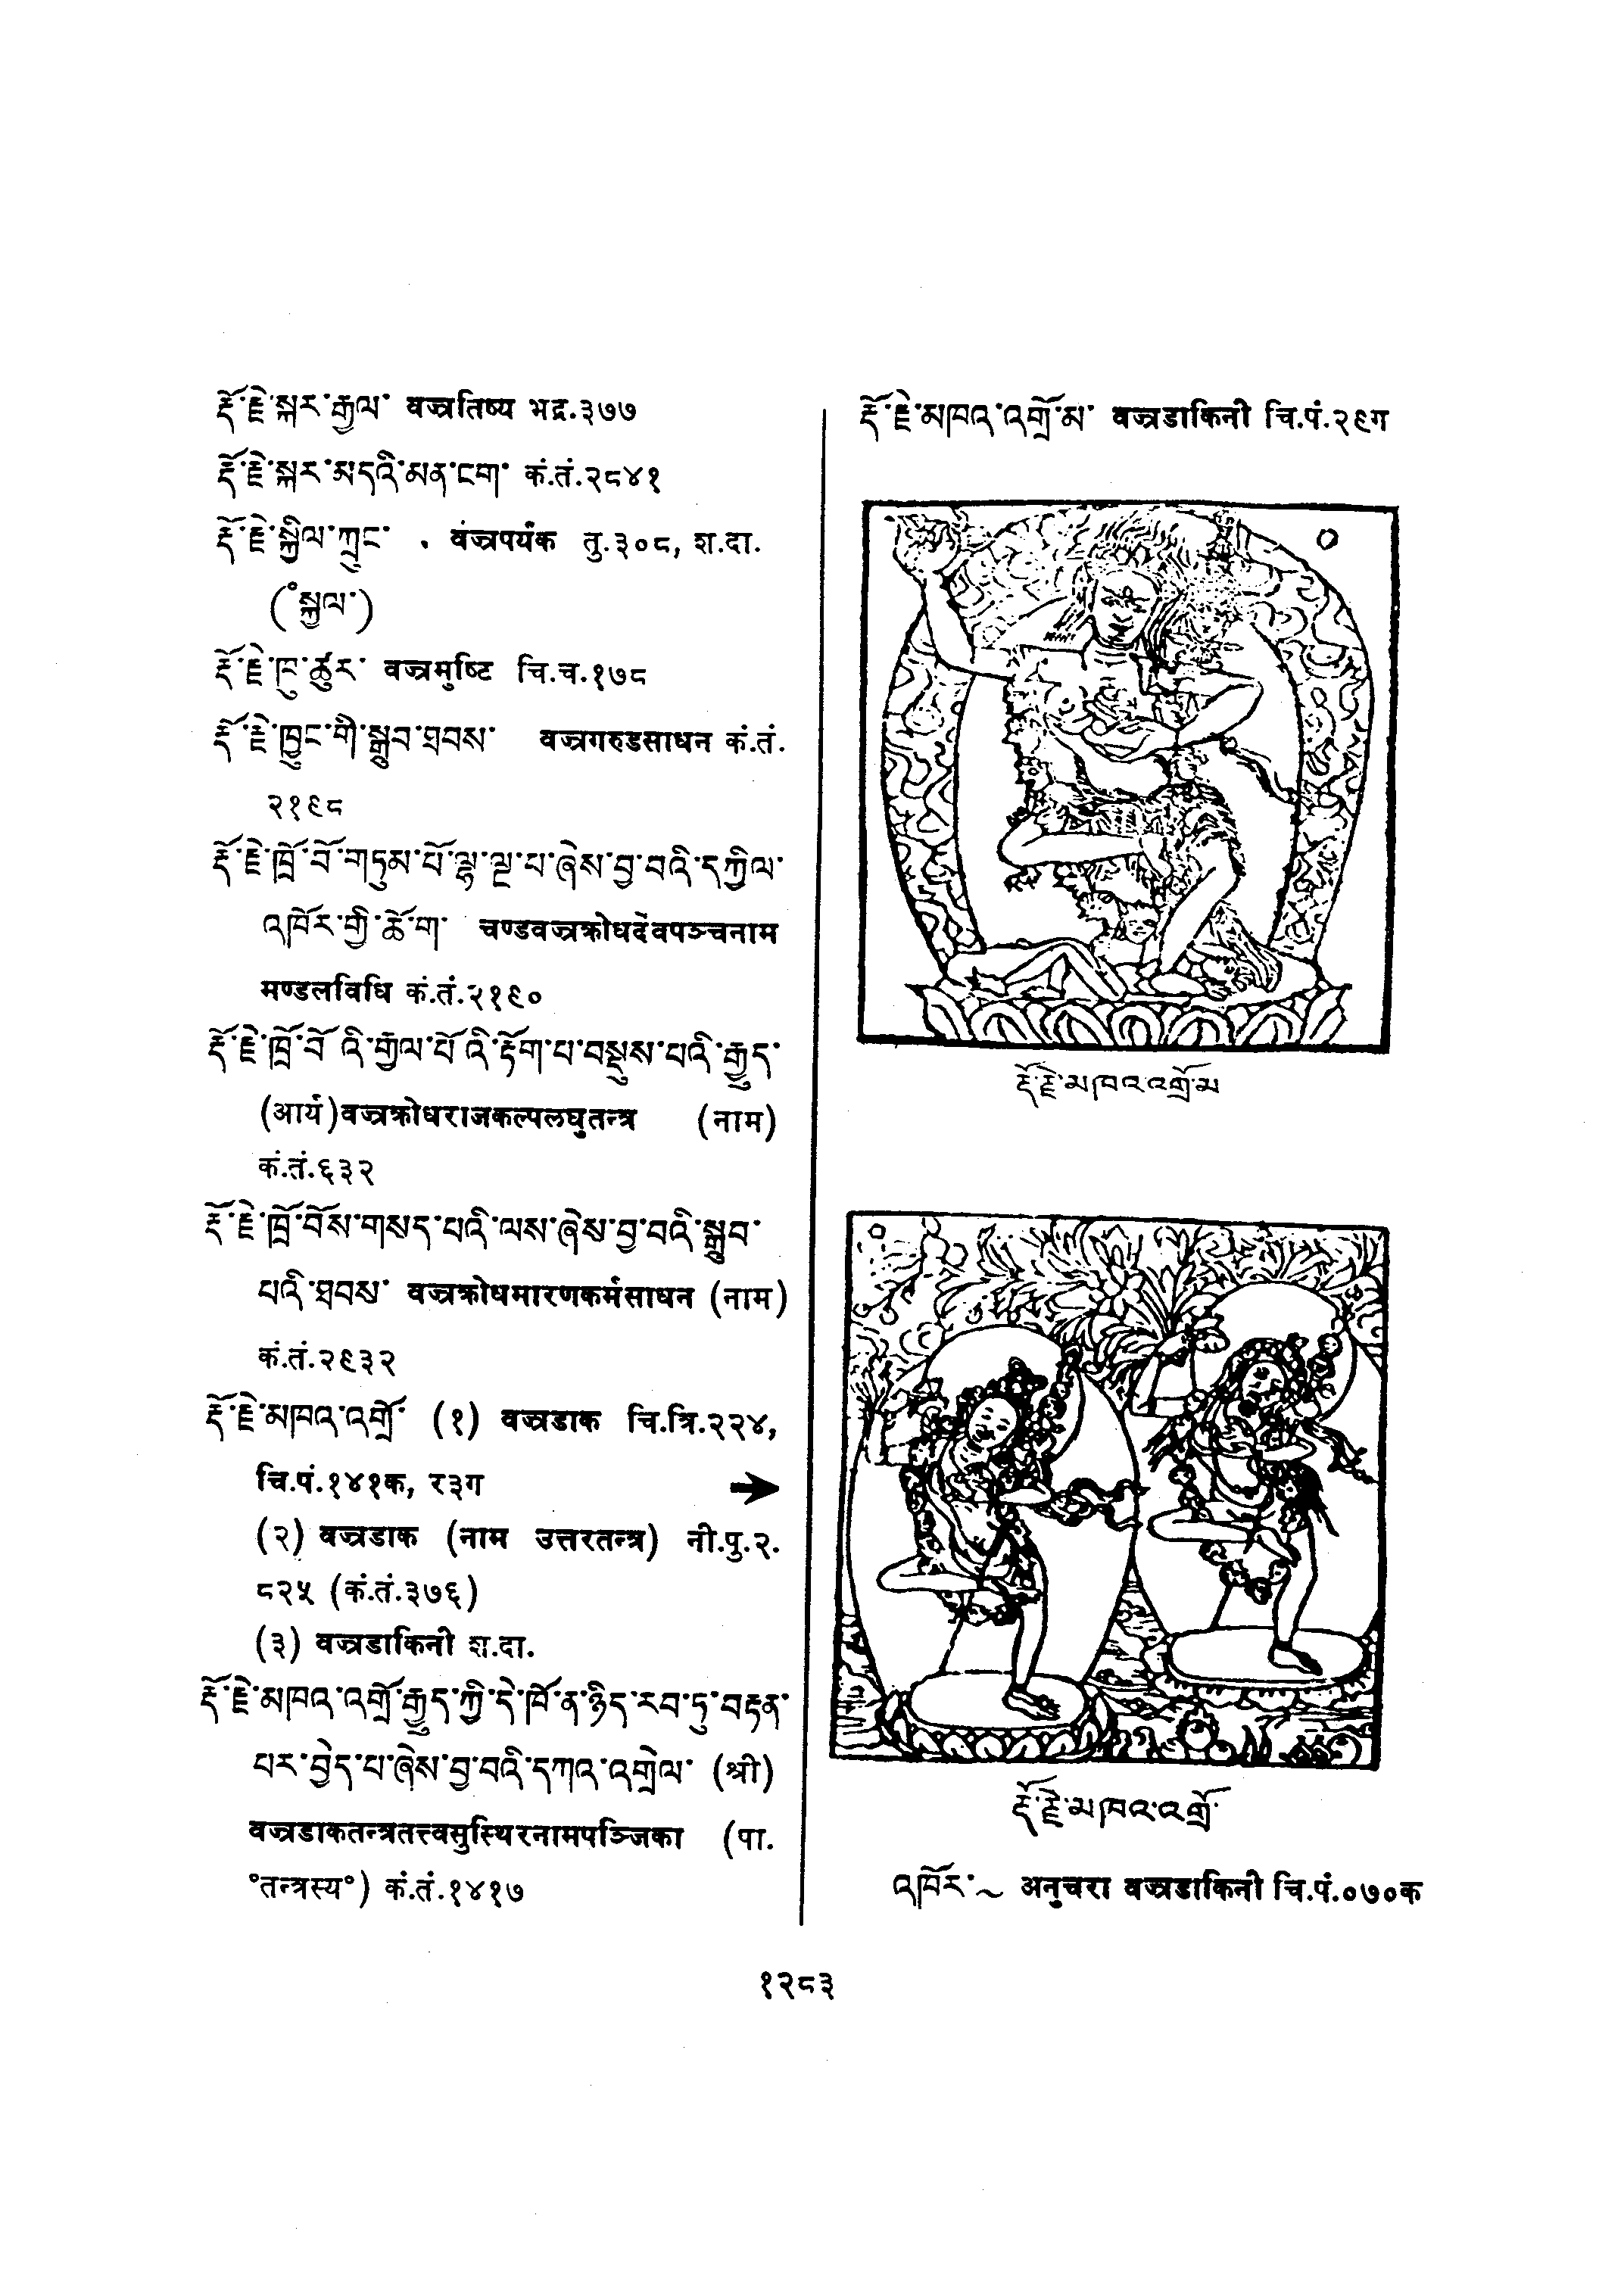 རྡོ་རྗེ་སྐར་རྒྱལ་ वज्रतिष्य भद्र.३७७
རྡོ་རྗེ་སྐར་མདའི་མན་ངག་ कं.तं.२८४१
རྡོ་རྗེ་སྐྱིལ་ཀྲུང་ . वज्रपर्यंक तु.३०८, श.दा.
(°སྐྱལ་)
རྡོ་རྗེ་ཁུ་ཚུར་ वज्रमुष्टि चि.च.१७८
རྡོ་རྗེ་ཁྱུང་གི་སྒྲུབ་ཐབས་ वज्रगरुडसाधन कं.तं.
२१९८
རྡོ་རྗེ་ཁྲོ་བོ་གཏུམ་པོ་ལྷ་ལྔ་པ་ཞེས་བྱ་བའི་དཀྱིལ་
འཁོར་གྱི་ཆོ་ག་ चण्डवज्रक्रोधदेवपञ्चनाम
मण्डलविधि कं.तं.२१९०
རྡོ་རྗེ་ཁྲོ་བོ་འི་རྒྱལ་པོ་འི་རྟོག་པ་བསྡུས་པའི་རྒྱུད་
(आर्य)वज्रक्रोधराजकल्पलघुतन्त्र (नाम)
कं.तं.६३२
རྡོ་རྗེ་ཁྲོ་བོས་གསད་པའི་ལས་ཞེས་བྱ་བའི་སྒྲུབ་
པའི་ཐབས་ वज्रक्रोधमारणकर्मसाधन (नाम)
कं.तं.२९३२
རྡོ་རྗེ་མཁའ་འགྲོ་ (१) वज्रडाक चि.त्रि.२२४,
चि.पं.१४१क, र३ग
(२) वज्रडाक (नाम उत्तरतन्त्र) नी.पु.२.
८२५ (कं.तं.३७६)
(३) वज्रडाकिनी श.दा.
རྡོ་རྗེ་མཁའ་འགྲོ་རྒྱུད་ཀྱི་དེ་ཁོ་ན་ཉིད་རབ་ཏུ་བརྟན་
པར་བྱེད་པ་ཞེས་བྱ་བའི་དཀའ་འགྲེལ་ (श्री)
वज्रडाकतन्त्रतत्त्वसुस्थिरनामपञ्जिका (पा.
°तन्त्रस्य°) कं.तं.१४१७
རྡོ་རྗེ་མཁའ་འགྲོ་མ་ वज्रडाकिनी चि.पं.२९ग
རྡོ་རྗེ་མཁའ་འགྲོ་མ
རྡོ་རྗེ་མཁའ་འགྲོ་
འཁོར་~ अनुचरा वज्रडाकिनी चि.पं.०७०क
१२८३